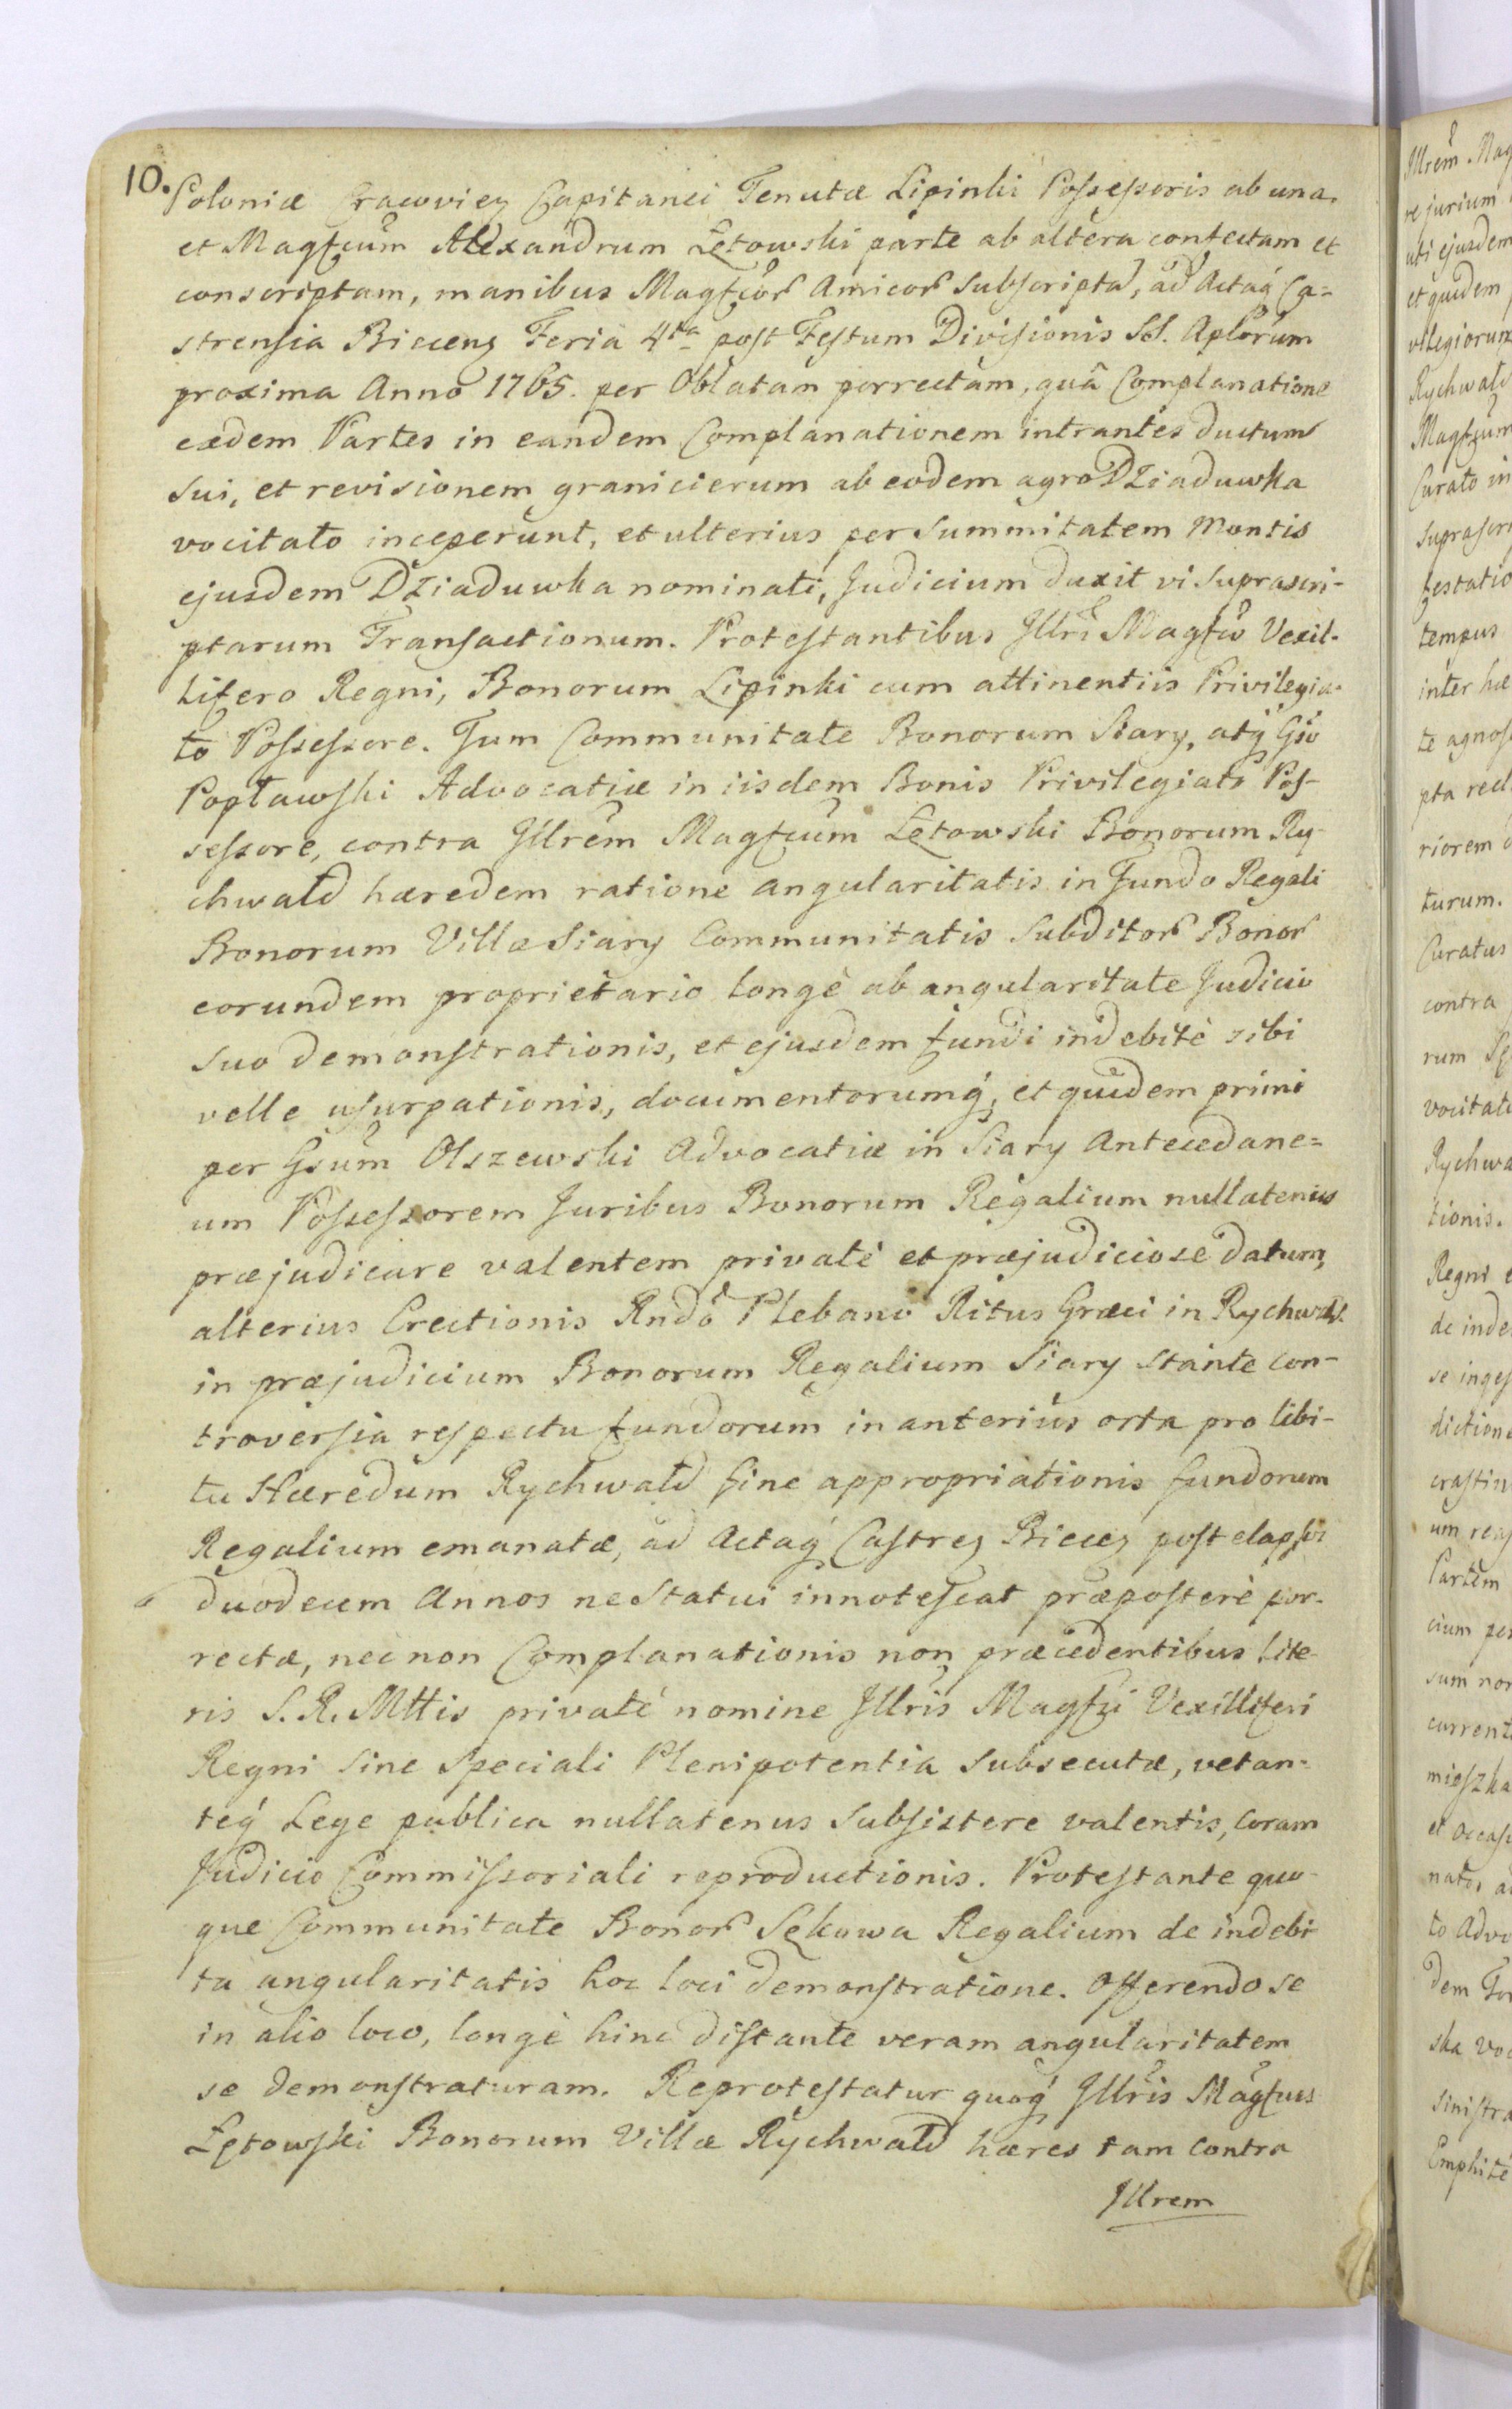 10.
Poloniæ Cracovieꝫ Capitanei Tenutæ Lipinki Possessoris ab una,
et Magfcum Alexandrum Łętowski parte ab altera confectam et
conscriptam, manibus Magfcor Amicor Subscripta, ad Actaq́ Ca=
strensia Biecenꝫ Feria 4ta post Festum Divisionis SS. Aplorum
proxima Anno 1765. per Oblatam porrectam, quâ Complanatione
eædem Partes in eandem Complanationem intrantes ductum
sui, et revisionem granicierum ab eodem agro Dziaduwka
vocitato inceperunt, et ulterius per Summitatem Montis
ejusdem Dziaduwka nominati, Judicium duxit vi suprascri-
ptarum Transactionum. Protestantibus Jllri Magfco Vexil-
lifero Regni, Bonorum Lipinki cum attinentiis Privilegia-
to Possessore. Tum Communitate Bonorum Siary, atq́ Gso
Popławski Advocatiæ in iisdem Bonis Privilegiato Pos-
sessore, contra Jllrem Magfcum Łętowski Bonorum Ry-
chwałd hæredem ratione angularitatis in Fundo Regali
Bonorum Villæ Siary Communitatis Subditor Bonor
eorundem proprietario longè ab angularitate Judicio
suo demonstrationis, et ejusdem fundi indebitè sibi
velle usurpationis, documentorumq́, et quidem primi
per Gsum Olszewski Advocatiæ in Siary Antecedane=
um Possessorem Juribus Bonorum Regalium nullatenus
præjudicare valentem privatè et præjudiciose datum,
alterius Erectionis Rndo Plebano Ritus Græci in Rychwałd
in præjudicium Bonorum Regalium Siary stante con-
troversia respectu fundorum in anterius orta pro libi-
tu Hæredum Rychwałd fine appropriationis fundorum
Regalium emanatæ, ad Actaq́ Castreꝫ Biecꝫ post elapsos
duodecem Annos ne Statui innotescat præposterè por-
rectæ, nec non Complanationis non præcedentibus lite-
ris S. R. Mttis privatè nomine Jllris Magfci Vexilliferi
Regni sine Speciali Plenipotentia Subsecutæ, vetan-
teq́ Lege publica nullatenus Subsistere valentis, coram
Judicio Commissoriali reproductionis. Protestante quo-
que Communitate Bonor Sękowa Regalium de indebi-
ta angularitatis hoc loci demonstratione. Offerendo se
in alio loco, longè hinc distante veram angularitatem
se demonstraturam. Reprotestatur quoq́ Jllris Magfcus
Łętowski Bonorum Villæ Rychwałd hæres tam contra
Jllrem